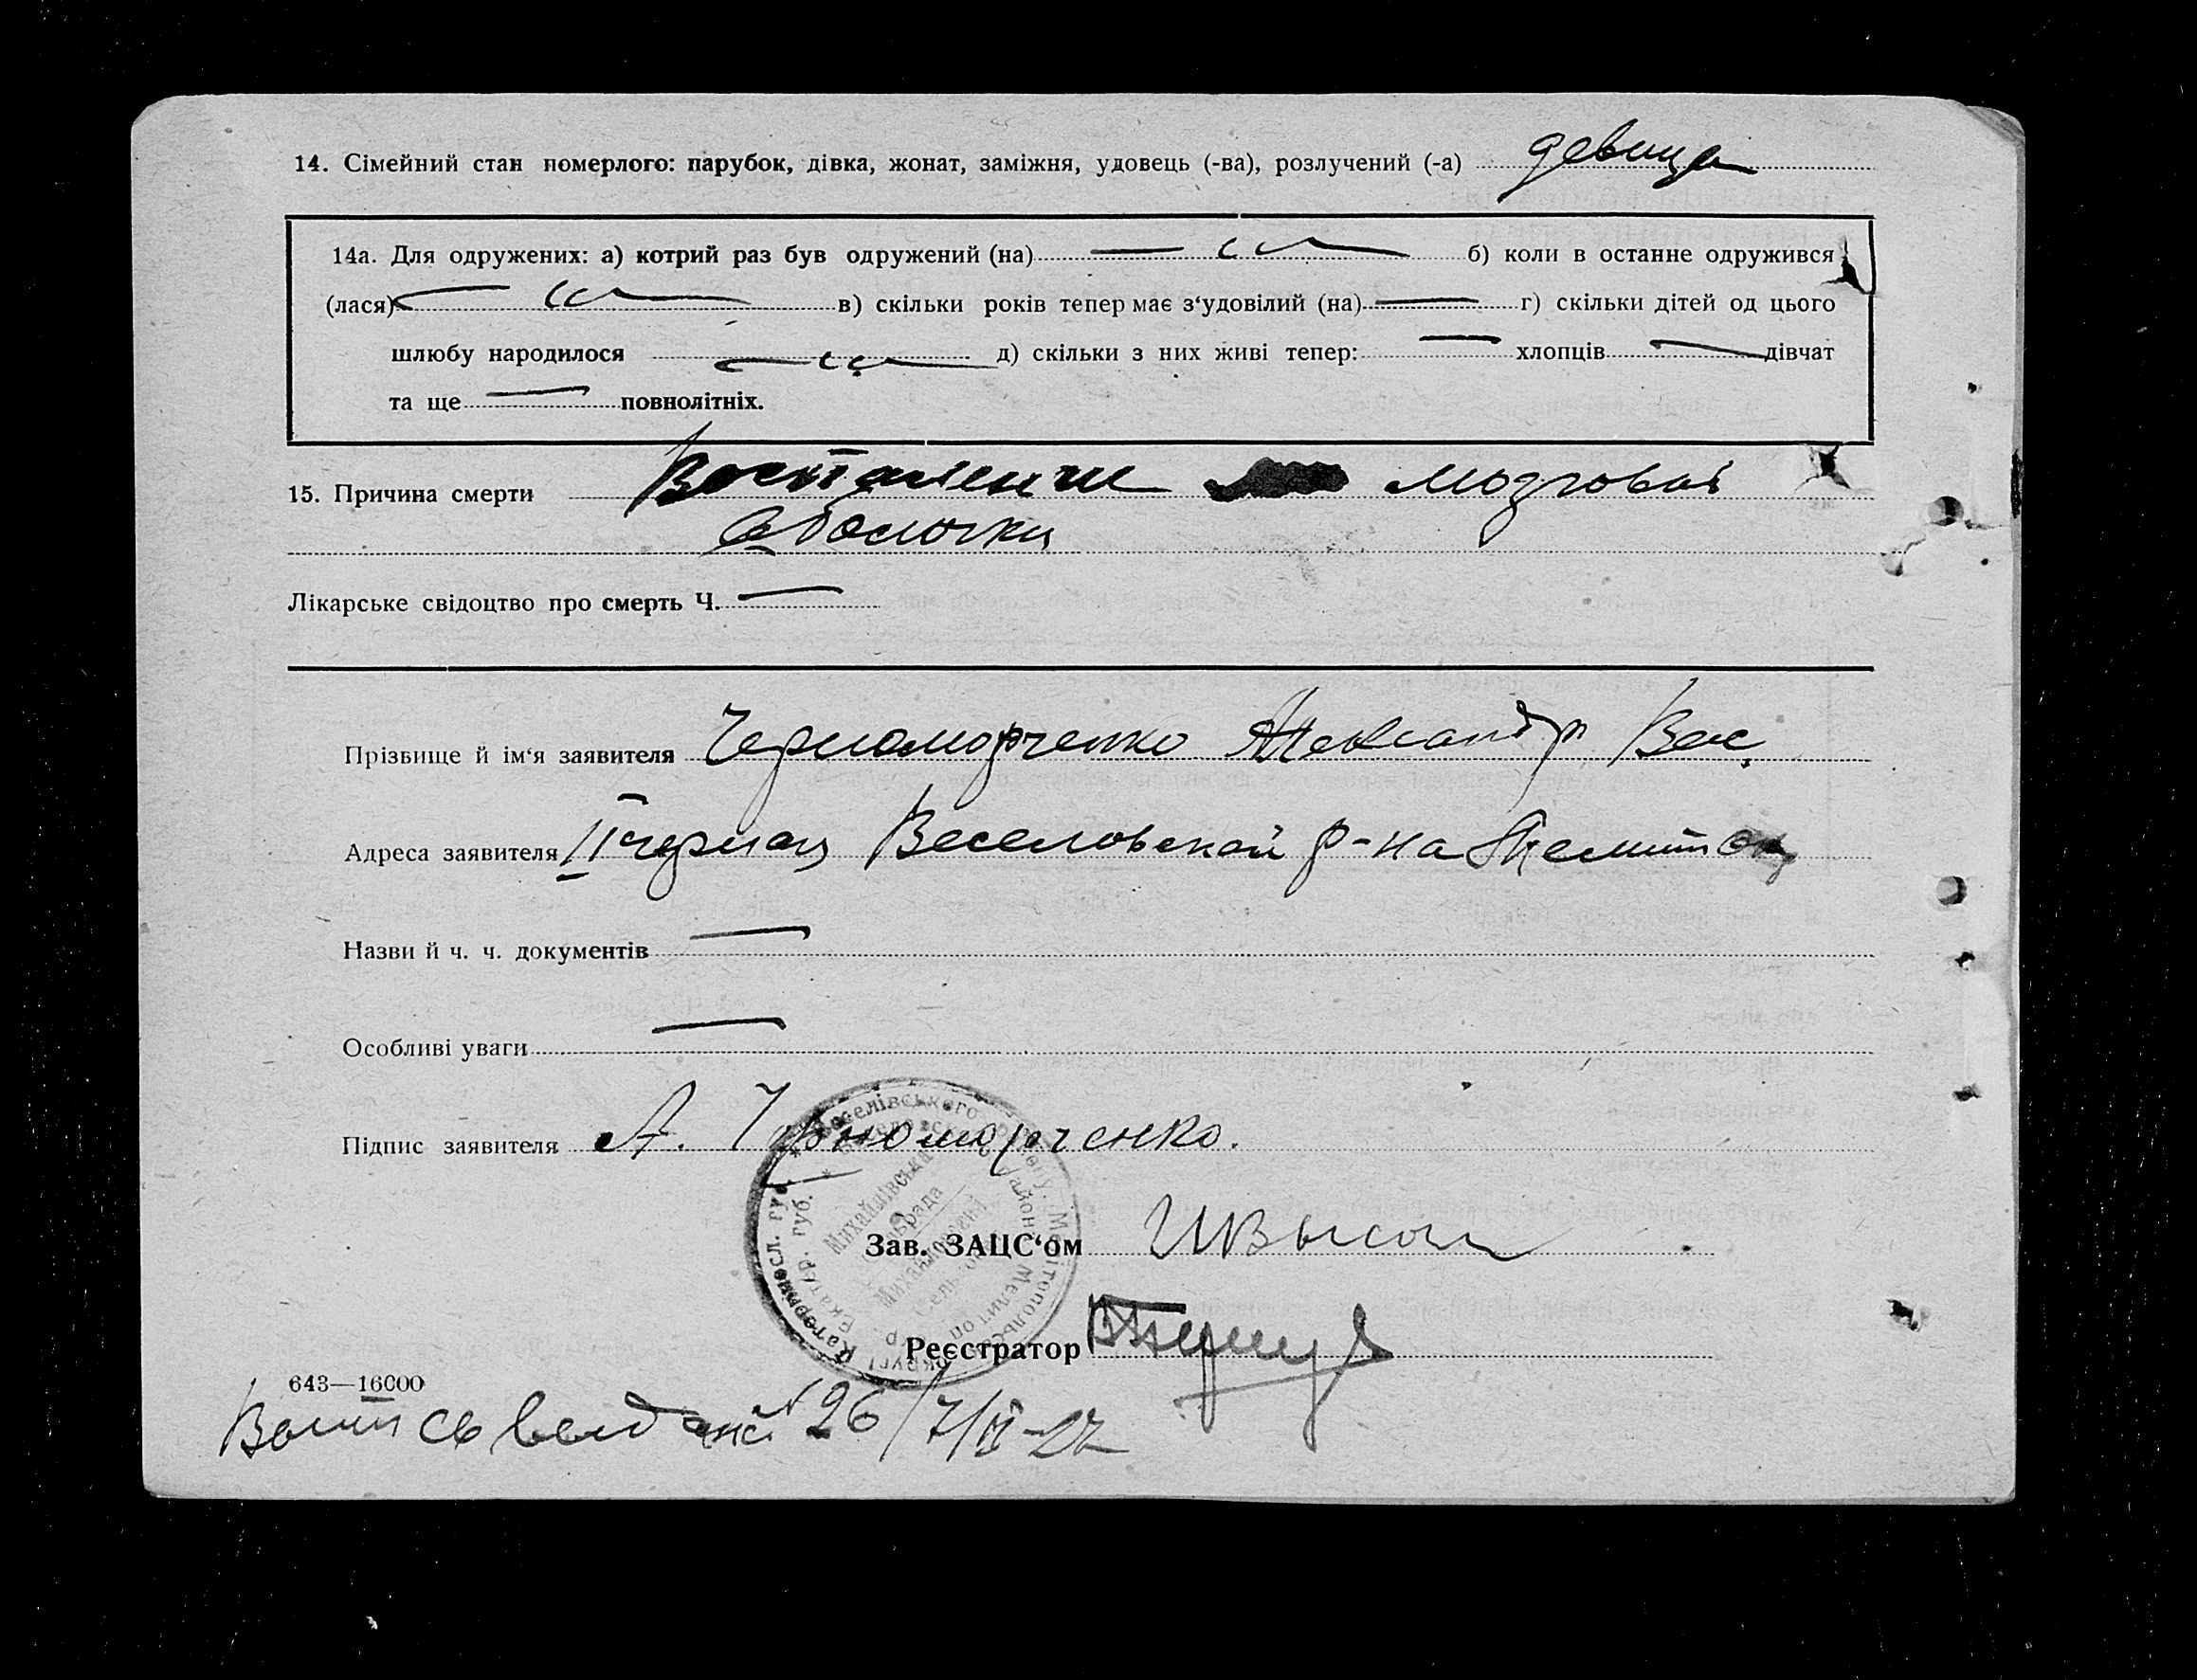 14. Сімейний стан померлого: парубок, дівка, жонат, заміжня, удовець (-ва), розлучений (-а) девица
14а. Для одружених: а) котрий раз був одружений (на) — „ — б) коли в останне одружився
(лася) — „ — в) скільки років тепер має з‘удовілий (на) — г) скільки дітей од цього
шлюбу народилося — „ — д) скільки з них живі тепер: — хлопців — дівчат
та ще — повнолітніх.
15. Причина смерти Воспаление мозговой
оболочки
Лікарське свідоцтво про смерть Ч. —
Прізвище й ім‘я заявителя Черноморченко Александр Вас.
Адреса заявителя Веселовской р-на
Назви й ч. ч. документів —
Особливі уваги —
Підпис заявителя А. Черноморченко.
Веселівського району. Мелітопольськ. округі Катериносл. губ.
Михайлівська
Зав. ЗАЦС‘ом
Реєстратор
643—16000
№ 26 / 7/II-27